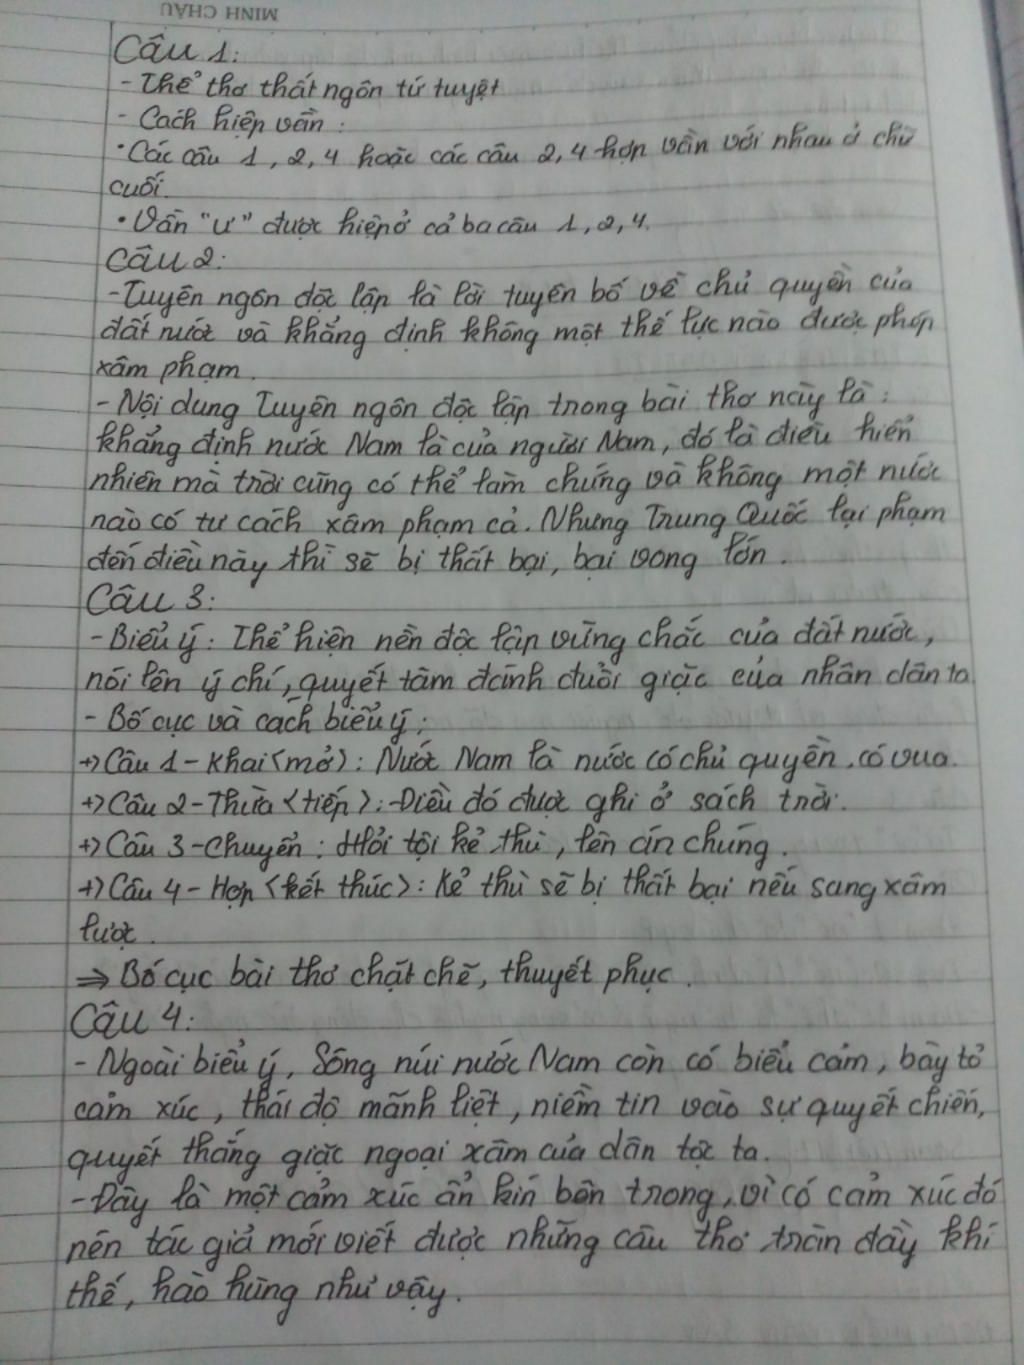 MINH CHÂU
Câu 1:
- Thể thơ thất ngôn tứ tuyệt
- Cách hiệp vần:
• Các câu 1, 2, 4 hoặc các câu 2, 4 hợp vần với nhau ở chữ
cuối.
• Vần "ư" được hiệp ở cả ba câu 1, 2, 4.
Câu 2:
- Tuyên ngôn độc lập là lời tuyên bố về chủ quyền của
đất nước và khẳng định không một thế lực nào được phép
xâm phạm.
- Nội dung Tuyên ngôn độc lập trong bài thơ này là:
khẳng định nước Nam là của người Nam, đó là điều hiển
nhiên mà trời cũng có thể làm chứng và không một nước
nào có tư cách xâm phạm cả. Nhưng Trung Quốc lại phạm
đến điều này thì sẽ bị thất bại, bại vong lớn.
Câu 3:
- Biểu ý: Thể hiện nền độc lập vững chắc của đất nước,
nói lên ý chí, quyết tâm đánh đuổi giặc của nhân dân ta
- Bố cục và cách biểu ý:
+) Câu 1 - Khai (mở): Nước Nam là nước có chủ quyền, có vua.
+) Câu 2 - Thừa (tiếp): Điều đó được ghi ở sách trời.
+) Câu 3 - Chuyển: Hỏi tội kẻ thù, lên án chúng.
+) Câu 4 - Hợp (kết thúc): Kẻ thù sẽ bị thất bại nếu sang xâm
lược.
⇒ Bố cục bài thơ chặt chẽ, thuyết phục.
Câu 4:
- Ngoài biểu ý, Sông núi nước Nam còn có biểu cảm, bày tỏ
cảm xúc, thái độ mãnh liệt, niềm tin vào sự quyết chiến,
quyết thắng giặc ngoại xâm của dân tộc ta.
- Đây là một cảm xúc ẩn kín bên trong, vì có cảm xúc đó
nên tác giả mới viết được những câu thơ tràn đầy khí
thế, hào hùng như vậy.